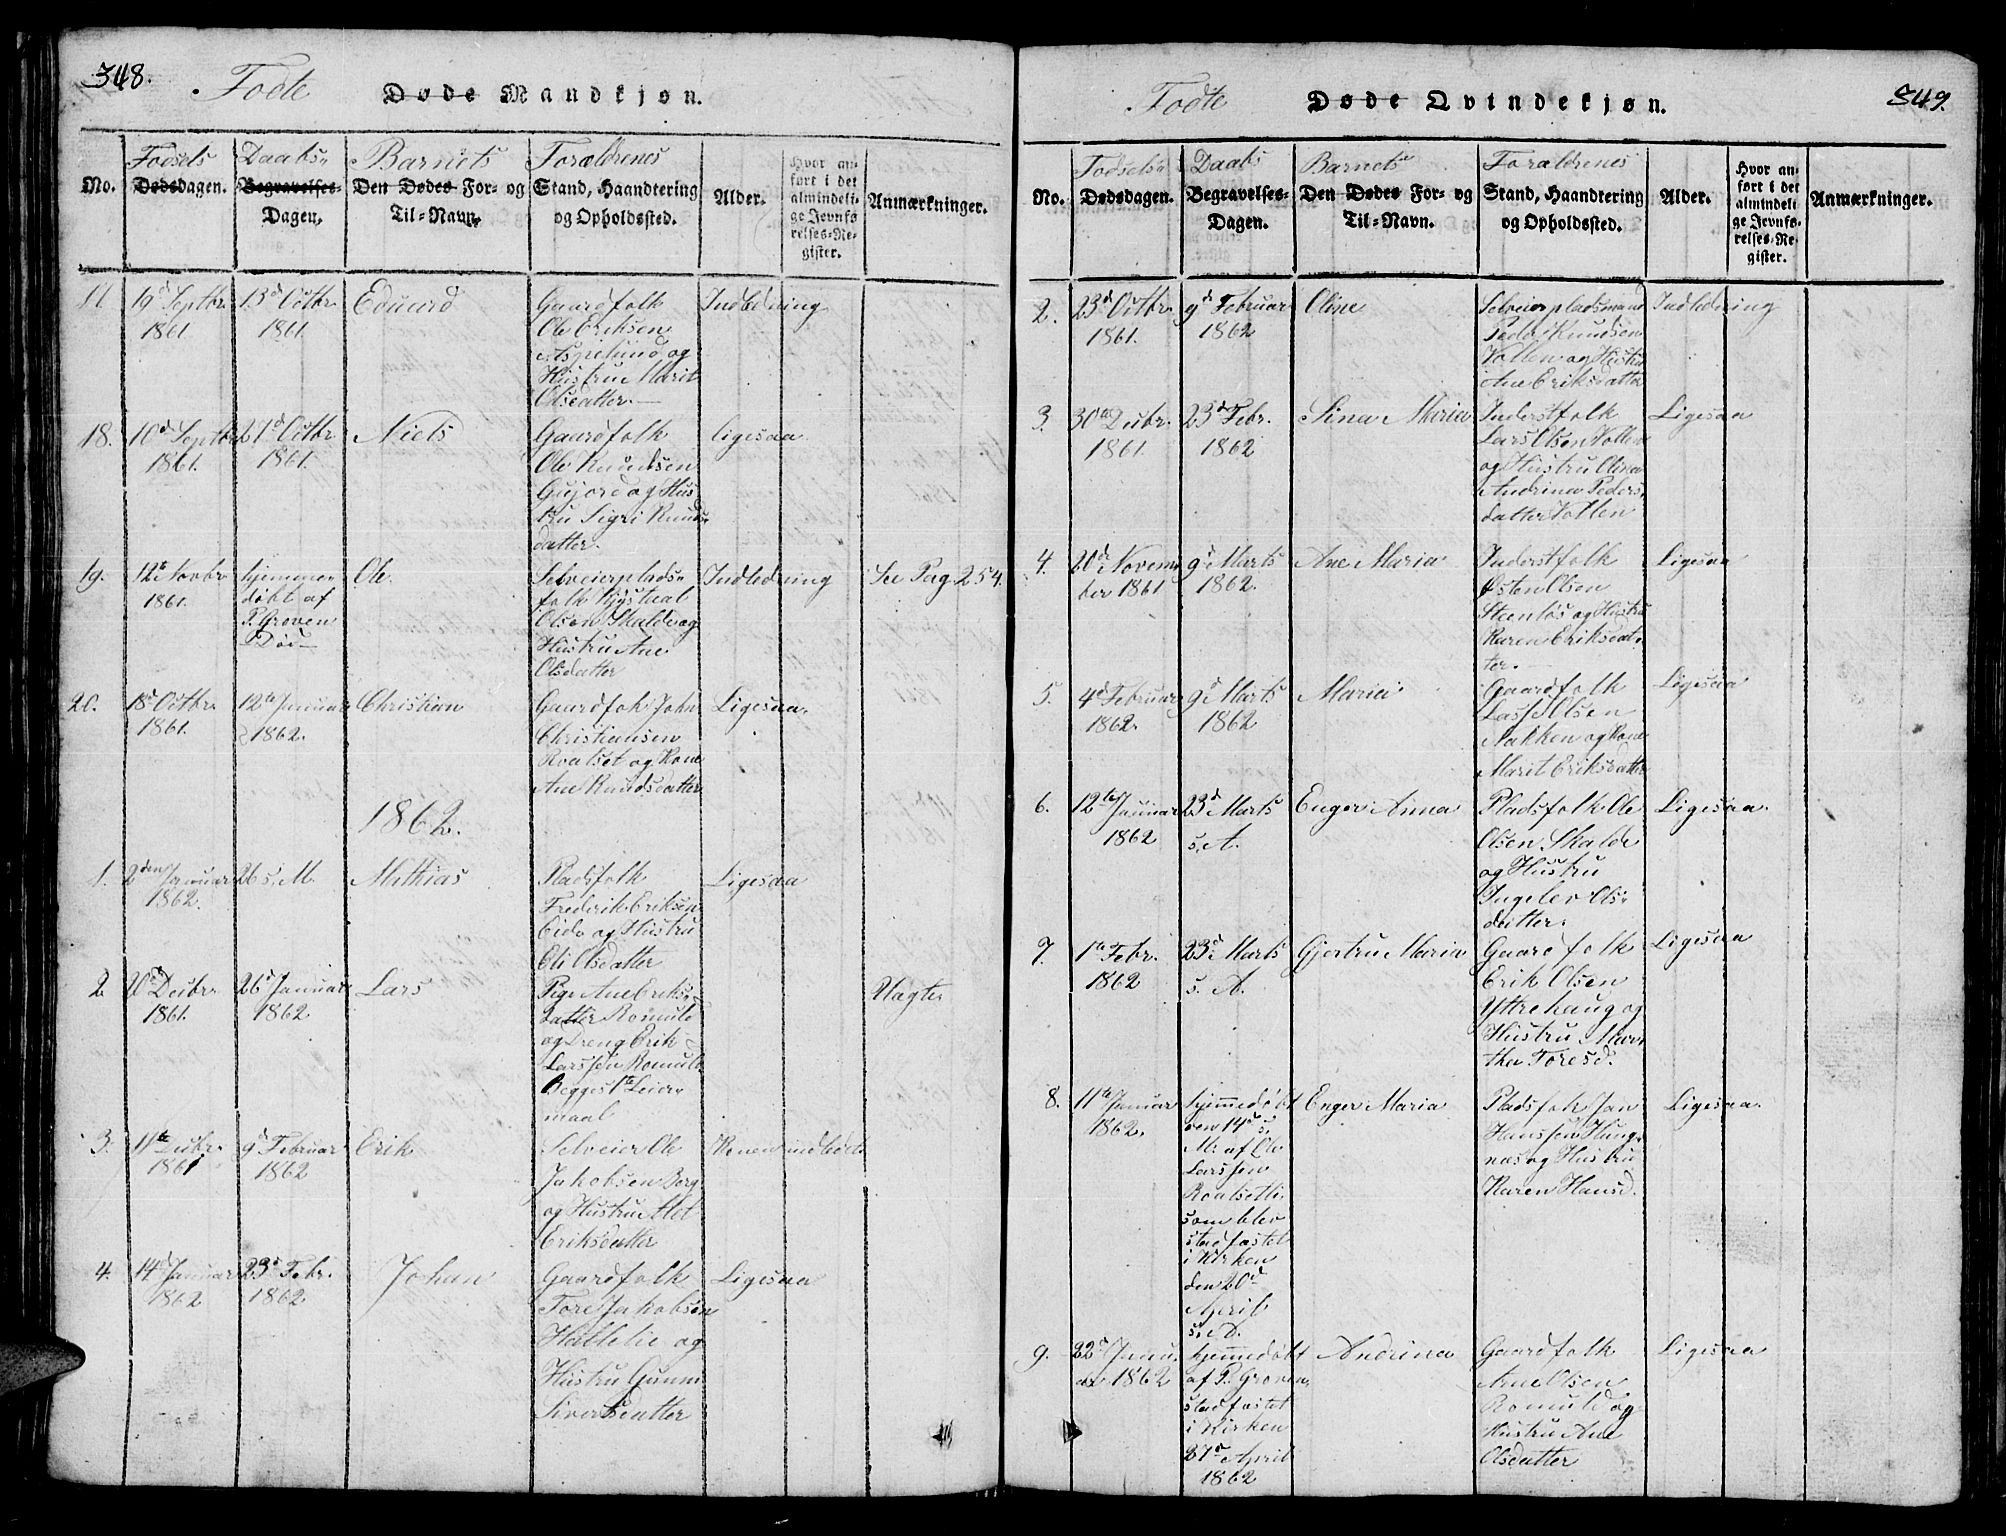 348.
Fødte
Døde Mandkjøn.
No.
Fødsels
Dødsdagen.
Daabs-
Begravelses-
Dagen.
Barnets
Den Dødes For- og
Til-Navn.
Forældrenes
Stand, Haandtering
og Opholdssted.
Alder.
Hvor an-
ført i det
almindeli-
ge Jevnfø-
relses-Re-
gister.
Anmærkninger.
19d Septbr
1861
13d Octbr
1861
Eduard
Gaardfolk
Ole Eriksen
Aspelund og
Hustru Marit
Olsdatter.
Indledning
18.
10d Septbr
1861.
27d Octbr
1861.
Niels
Gaardfolk
Ole Knudsen
Gujord og Hus
tru Sigri Knuds
datter.
ligesaa
19.
12te Novbr
1861.
hjemme
døbt af
P. Groven
Død
Ole
Selveierplads-
folk
Olsen Skalde og
Hustru Ane
Olsdatter
Indledning
See Pag. 254.
20.
18d Octbr
1861.
12te Januar
1862.
Christian
Gaardfok John
Christiansen
Roalset og Kone
Ane Knudsdatter
Ligesaa.
1862.
1.
2den Januar
1862.
26 s. M.
Mathias
Pladsfolk
Frederik Eriksen
Eide og Hustru
Eli Olsdatter
Ligesaa
2.
20d Decbr
1861.
26d Januar
1862
Lars
Pige Ane Eriks-
datter Romuld
og Dreng Erik
Larssen Romuld
Begges 1te Leier-
maal
Uægte
3.
11te Decbr.
1861
9d Februar
1862
Erik
Selveier Ole
Jakobsen Berg
og Hustru Met
Eriksdatter
Konen indledet
4.
14d Januar
1862
23d Febr.
1862
Johan
Gaardfolk
Tore Jakobsen
Hallelie og
Hustru Gunni
Siversdatter
Ligesaa
Fødte
Døde Qvindekjøn.
349.
No.
Fødsels
Dødsdagen.
Daabs
Begravelses-
Dagen.
Barnets
Den Dødes For- og
Til-Navn.
Forældrenes
Stand, Haandtering
og Opholdssted.
Alder.
Hvor an-
ført i det
almindeli
ge Jevnfø-
relses-Re-
gister.
Anmærkninger.
2.
23d Octbr.
1861.
9d Februar
1862
Oline
Selveierpladsmand
Peder Knudsen
Vollen og Hustru
Ane Eriksdatter
Indledning
3.
30te Decbr.
1861
23d Febr.
1862
Sina Maria
Inderstfolk
Lars Olsen Vollen
og Hustru Olina
Andrina Peders
datter Vollen
Ligesaa
4.
20d Novem
ber 1861
9d Marts
1862.
Ane Maria
Inderstfolk
Østen Olsen
Steenløs og Hustru
Karen Eriksdat-
ter.
Ligesaa
5.
4d Februar
1862.
9d Marts
1862
Maria
Gaardfolk
Lasse Olsen
Nakken og Kone
Marit Eriksdatter
Ligesaa
6.
12te Januar
1862
23d Marts
s. A.
Enger Anna
Pladsfolk Ole
Olsen Skalde
og Hustru
Ingelev Ols-
datter.
Ligesaa.
7.
1te Febr.
1862
23d Marts
s. A.
Gjertru Maria
Gaardfolk
Erik Olsen
Yttrehaug og
Hustru Mar-
tha Toresd.
Ligesaa
8.
11te Januar
1862.
hjemmedøbt
den 14d s.
M. af Ole
Larssen
Roalsetli
som blev
stadfæstet
i Kirken
den 20d
April
s. A.
Enger Maria
Pladsfok Jan
Hanssen Hung-
næs og Hustru
Karen Hansd.
Ligesaa.
9.
22d Janu-
ar 1862
hjemmedøbt
af P. Groven
stadfæstet
i Kirken
27d April
1862
Andrina
Gaardfolk
Arne Olsen
Romuld og
Hustru Ane
Olsdatter
Ligesaa